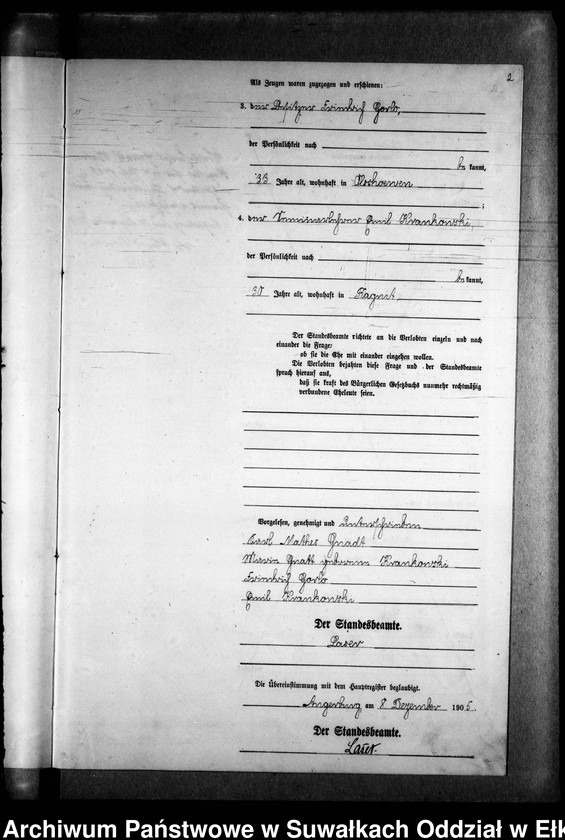 2
Als Zeugen waren zugezogen und erschienen:
3. der Besitzer Friedrich Gorlo,
der Persönlichkeit nach
be kannt,
33 Jahre alt, wohnhaft in
;
4. der Seminarlehrer Emil Krankowski,
der Persönlichkeit nach
be kannt,
30 Jahre alt, wohnhaft in Ragnit
Der Standesbeamte richtete an die Verlobten einzeln und nach
einander die Frage:
ob sie die Ehe mit einander eingehen wollen.
Die Verlobten bejahten diese Frage und der Standesbeamte
sprach hierauf aus,
daß sie kraft des Bürgerlichen Gesetzbuchs nunmehr rechtmäßig
verbundene Eheleute seien.
Vorgelesen, genehmigt und unterschrieben
Karl Mathes Gnadt
Marie Gnatt geborene Krankowski
Friedrich Gorlo
Emil Krankowski
Der Standesbeamte.
Laser
Die Übereinstimmung mit dem Hauptregister beglaubigt.
Angerburg am 8 Dezember 1905.
Der Standesbeamte.
Laser.
Archiwum Państwowe w Suwałkach Oddział w Ełk